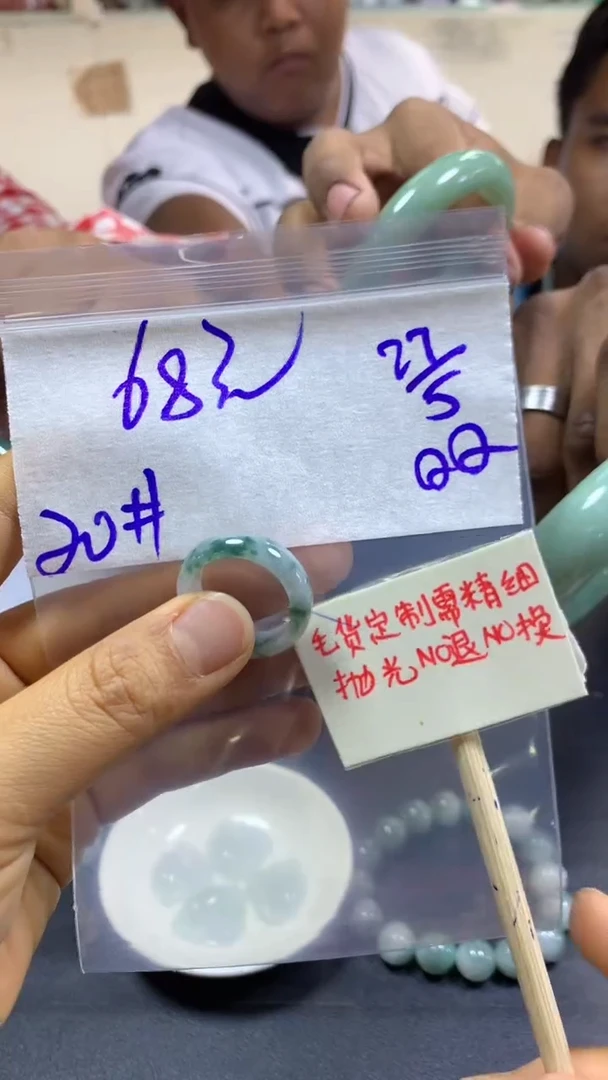 68元
27/5
22
20#
毛货定制需精细
抛光NO退NO换